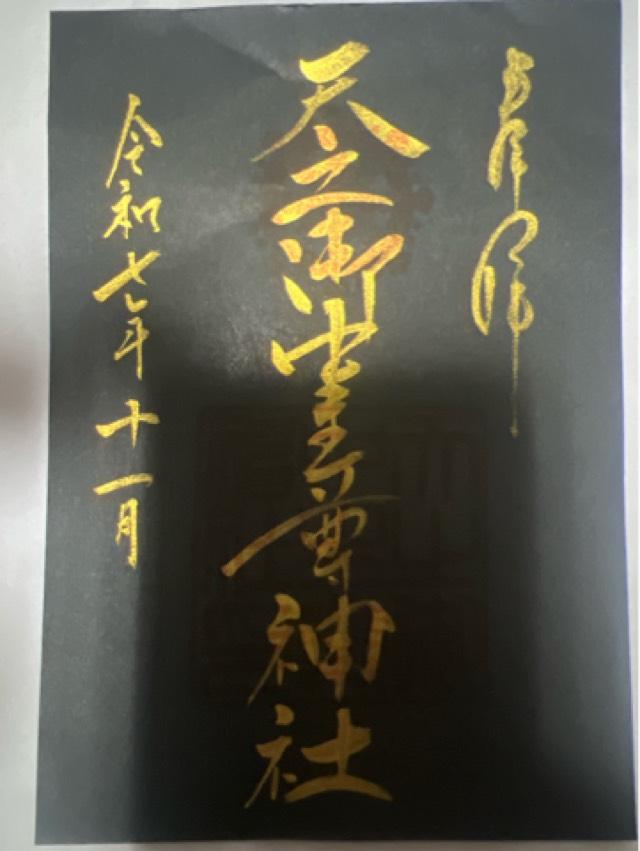 奉拝
天之御中主尊神社
令和七年十一月